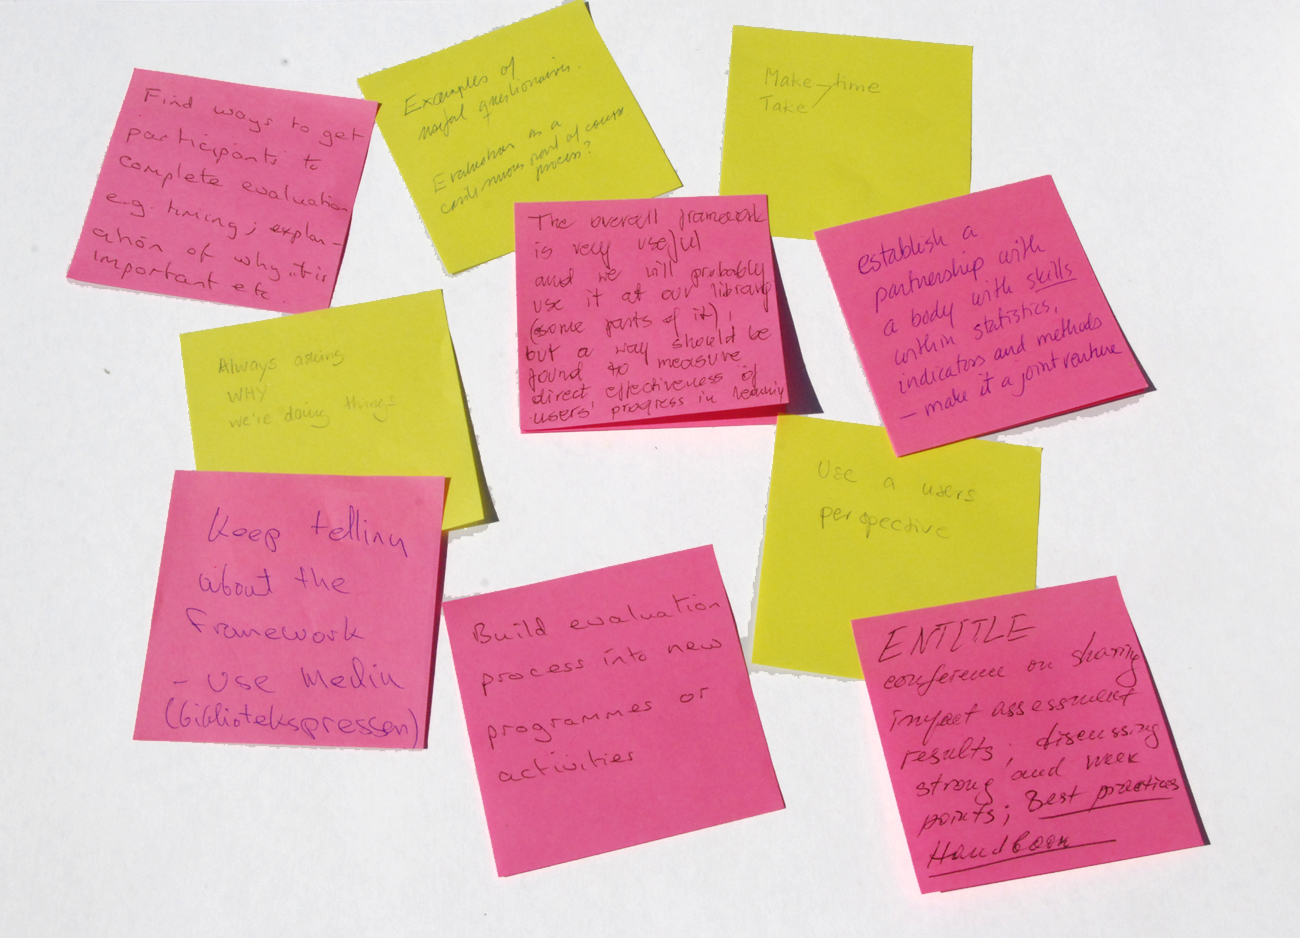 Find ways to get
participants to
complete evaluation
e.g. timing; explan-
ation of why it is
important etc.
Examples of
useful questionnaires.
Evaluation as a
continuous part of course
process?
Make time
Take
The overall framework
is very useful
and we will probably
use it at our library
(some parts of it),
but a way should be
found to measure
direct effectiveness of
users' progress in
establish a
partnership with
a body with skills
within statistics,
indicators and methods
- make it a joint venture
Always asking
WHY
we're doing things
Keep telling
about the
framework
- use Media
(bibliotekspressen)
Use a users
perspective
Build evaluation
process into new
programmes or
activities
ENTITLE
conference on sharing
impact assessment
results, discussing
strong and weak
points; Best practices
Handbook